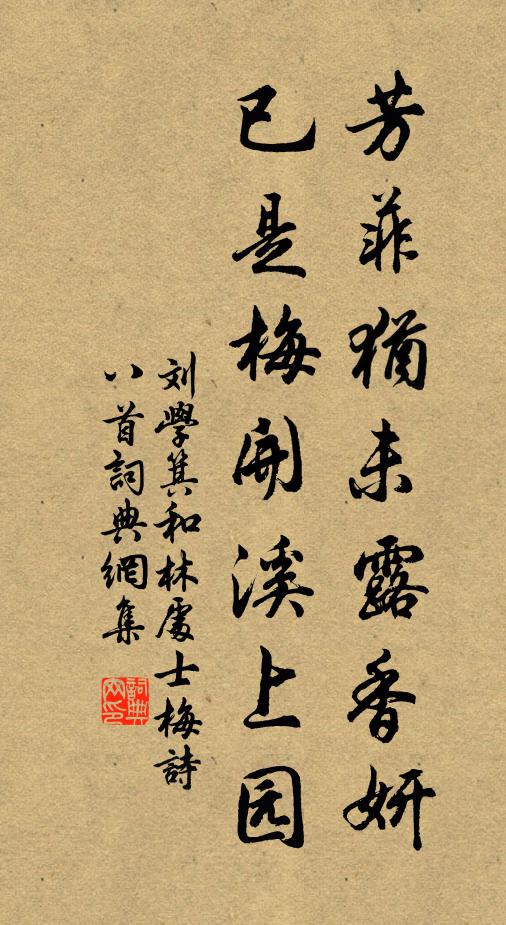 芳菲猶未露香妍
已是梅開溪上园
刘學箕和林處士梅詩
八首詞典網集
詞典
网印